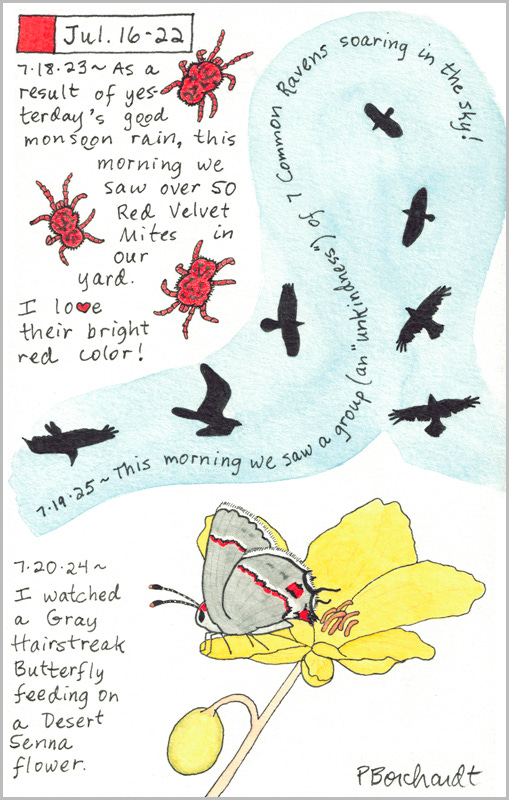 Jul. 16-22
7.18.23~ As a
result of yes-
terday's good
monsoon rain, this
morning we
saw over 50
Red Velvet
Mites in
our
yard.
I lo♥e
their bright
red color!
7.19.25~ This morning we saw a group (an "unkindness") of 7 Common Ravens soaring in the sky!
7.20.24~
I watched
a Gray
Hairstreak
Butterfly
feeding on
a Desert
Senna
flower.
PBorchardt